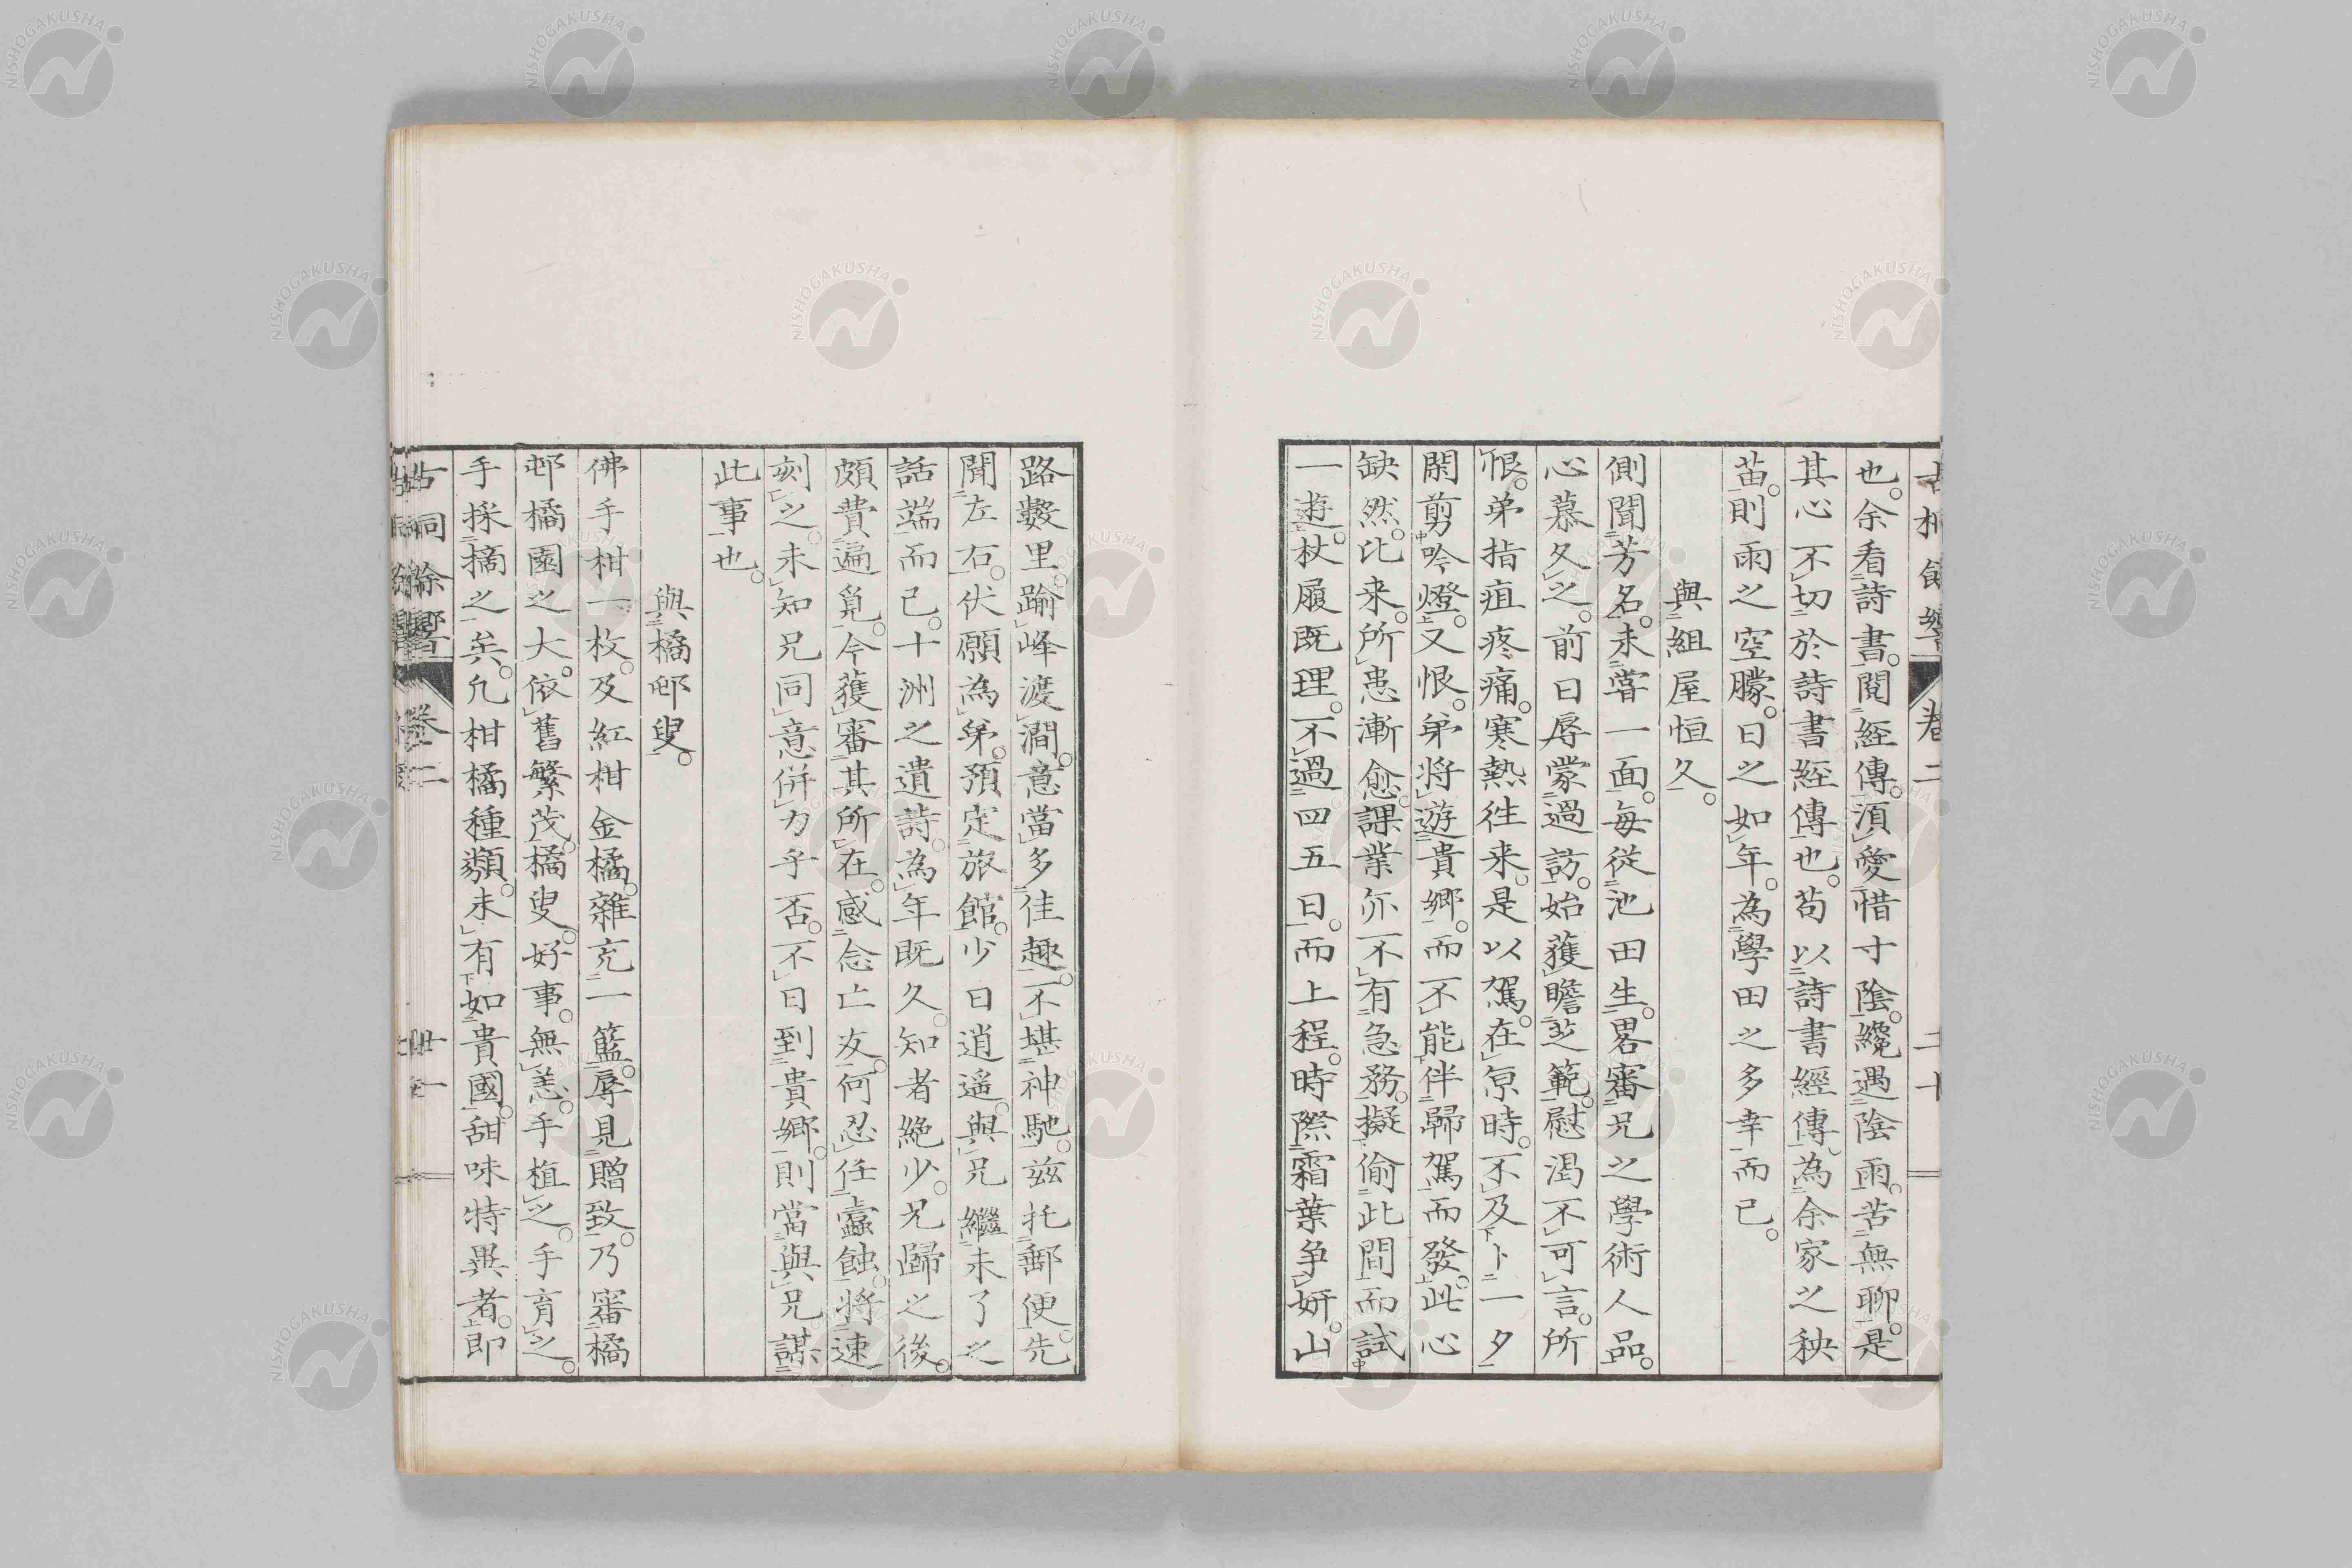 也。余看詩書。閱經傳。須愛惜寸陰。纔遇陰雨。苦無聊。是
其心不切於詩書經傳也。苟以詩書經傳為余家之秧
苗。則雨之空朦。日之如年。為學田之多幸而已。
與組屋恒久。
側聞芳名。未嘗一面。每從池田生。畧審兄之學術人品。
心慕久之。前日辱蒙過訪。始獲瞻芝範。慰渴不可言。所
恨。弟指疽疼痛。寒熱往来。是以駕在京時。不及卜一夕
閑剪吟燈。又恨。弟將遊貴鄉。而不能伴歸駕而發。此心
缺然。比来。所患漸愈。課業亦不有急務。擬偷此間而試
一遊。杖履既理。不過四五日。而上程。時際霜葉争妍。山
路數里。踰峰渡澗。意當多佳趣。不堪神馳。茲托郵便。先
聞左右。伏願為弟。預定旅館。少日逍遥。與兄繼未了之
話端而已。十洲之遺詩。為年既久。知者絶少。兄歸之後。
頗費遍覓。今獲審其所在。感念亡友。何忍任蠹蝕。將速
刻之。未知兄同意併力乎否。不日到貴鄉。則當與兄謀
此事也。
與橘邨叟。
佛手柑一枚。及紅柑金橘。雜充一籃。辱見贈致。乃審橘
邨橘園之大。依舊繁茂。橘叟。好事。無恙。手植之。手育之。
手採摘之矣。凡柑橘種類。未有如貴國。甜味特異者。即
卷二
NISHOGAKUSHA